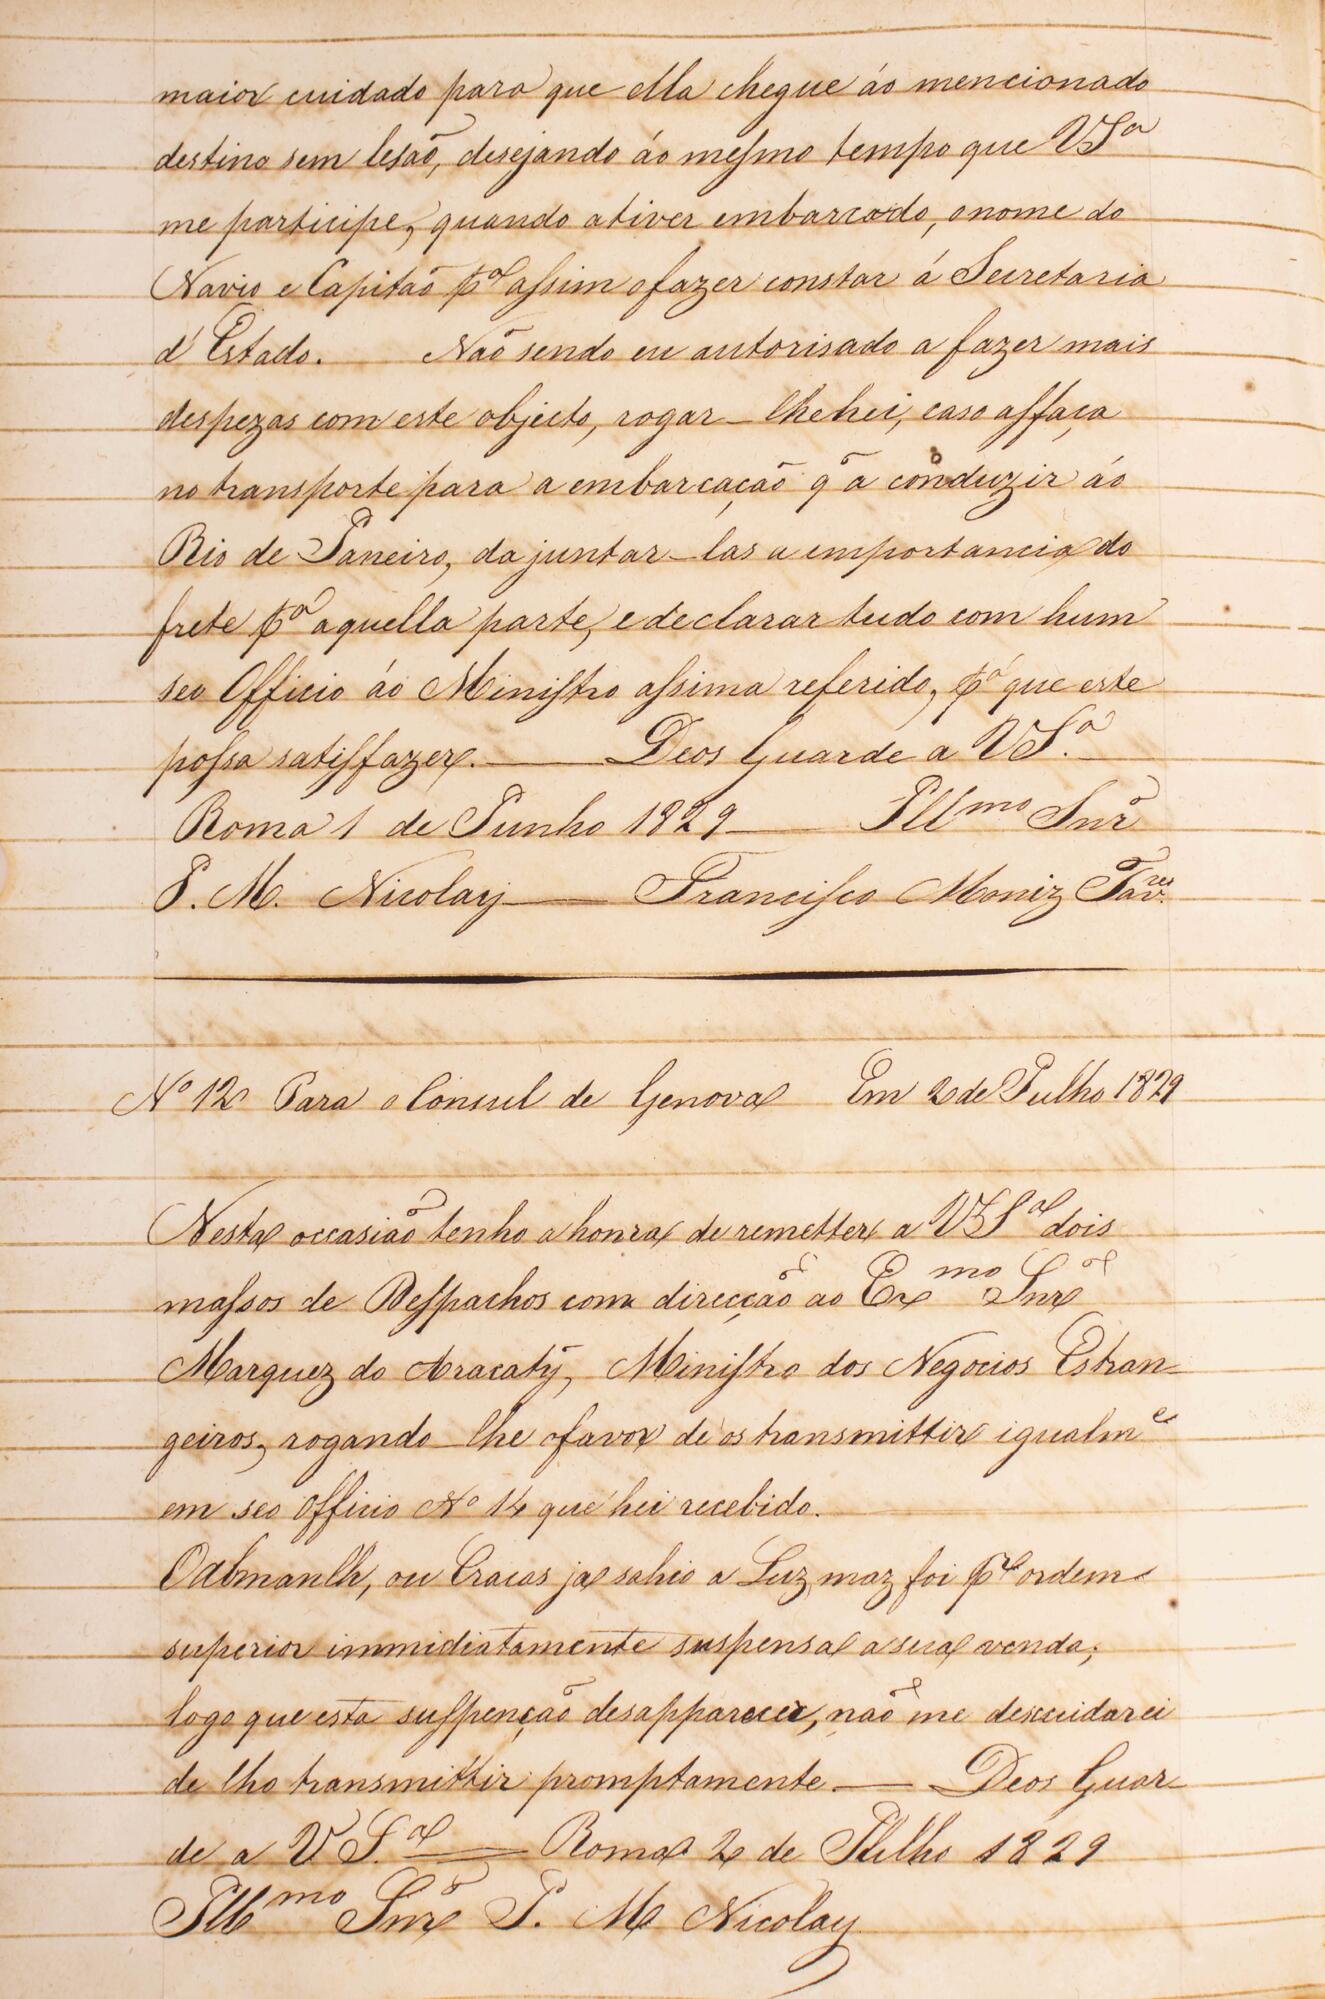 maior cuidado para que ella chegue áo mencionado
destino sem lesaõ, desejando áo mesmo tempo que VSª
me participe, quando a tiver embarcado, o nome do
Navio e Capitaõ pª assim o fazer constar á Secretaria
d'Estado. Naõ sendo eu autorisado a fazer mais
despezas com este objecto, rogar-lhe hei, caso as faça
no transporte para a embarcaçaõ q̃ a conduzir áo
Rio de Janeiro, de juntar-las a importancia do
frete pª aquella parte, e declarar tudo com hum
seo Officio áo Ministro assima referido, pª que este
possa satisfazer. — Deos Guarde a VSª.
Roma 1 de Junho 1829 — Illmo Snr̃
P. M. Nicolay — Francisco Moniz Tavres
Nº 12 Para o Consul de Genova Em 2 de Julho 1829
Nesta occasiaõ tenho a honra de remetter a VSª dois
massos de Despachos com direcçaõ ao Exmo Snr
Marquez do Aracatÿ, Ministro dos Negocios Estran-
geiros, rogando-lhe o favor de os transmittir igualme
em seo Officio Nº 14 que hei recebido.
O Almanlh, ou Cracas ja sahio a Luz, maz foi pr ordem
superior immidiatamente suspensa a sua venda;
logo que esta suspençaõ desapparecer, naõ me descuidarei
de lho transmittir promptamente. — Deos Guar-
de a VSª — Roma 2 de Julho 1829
Illmo Snr̃ P. M Nicolay